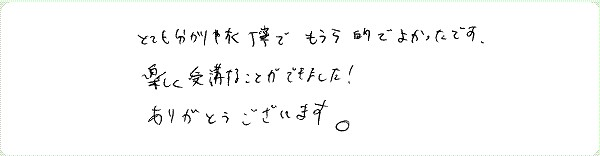 とても分かりやすく丁寧で もうら的でよかったです.
楽しく受講することができました!
ありがとうございます。